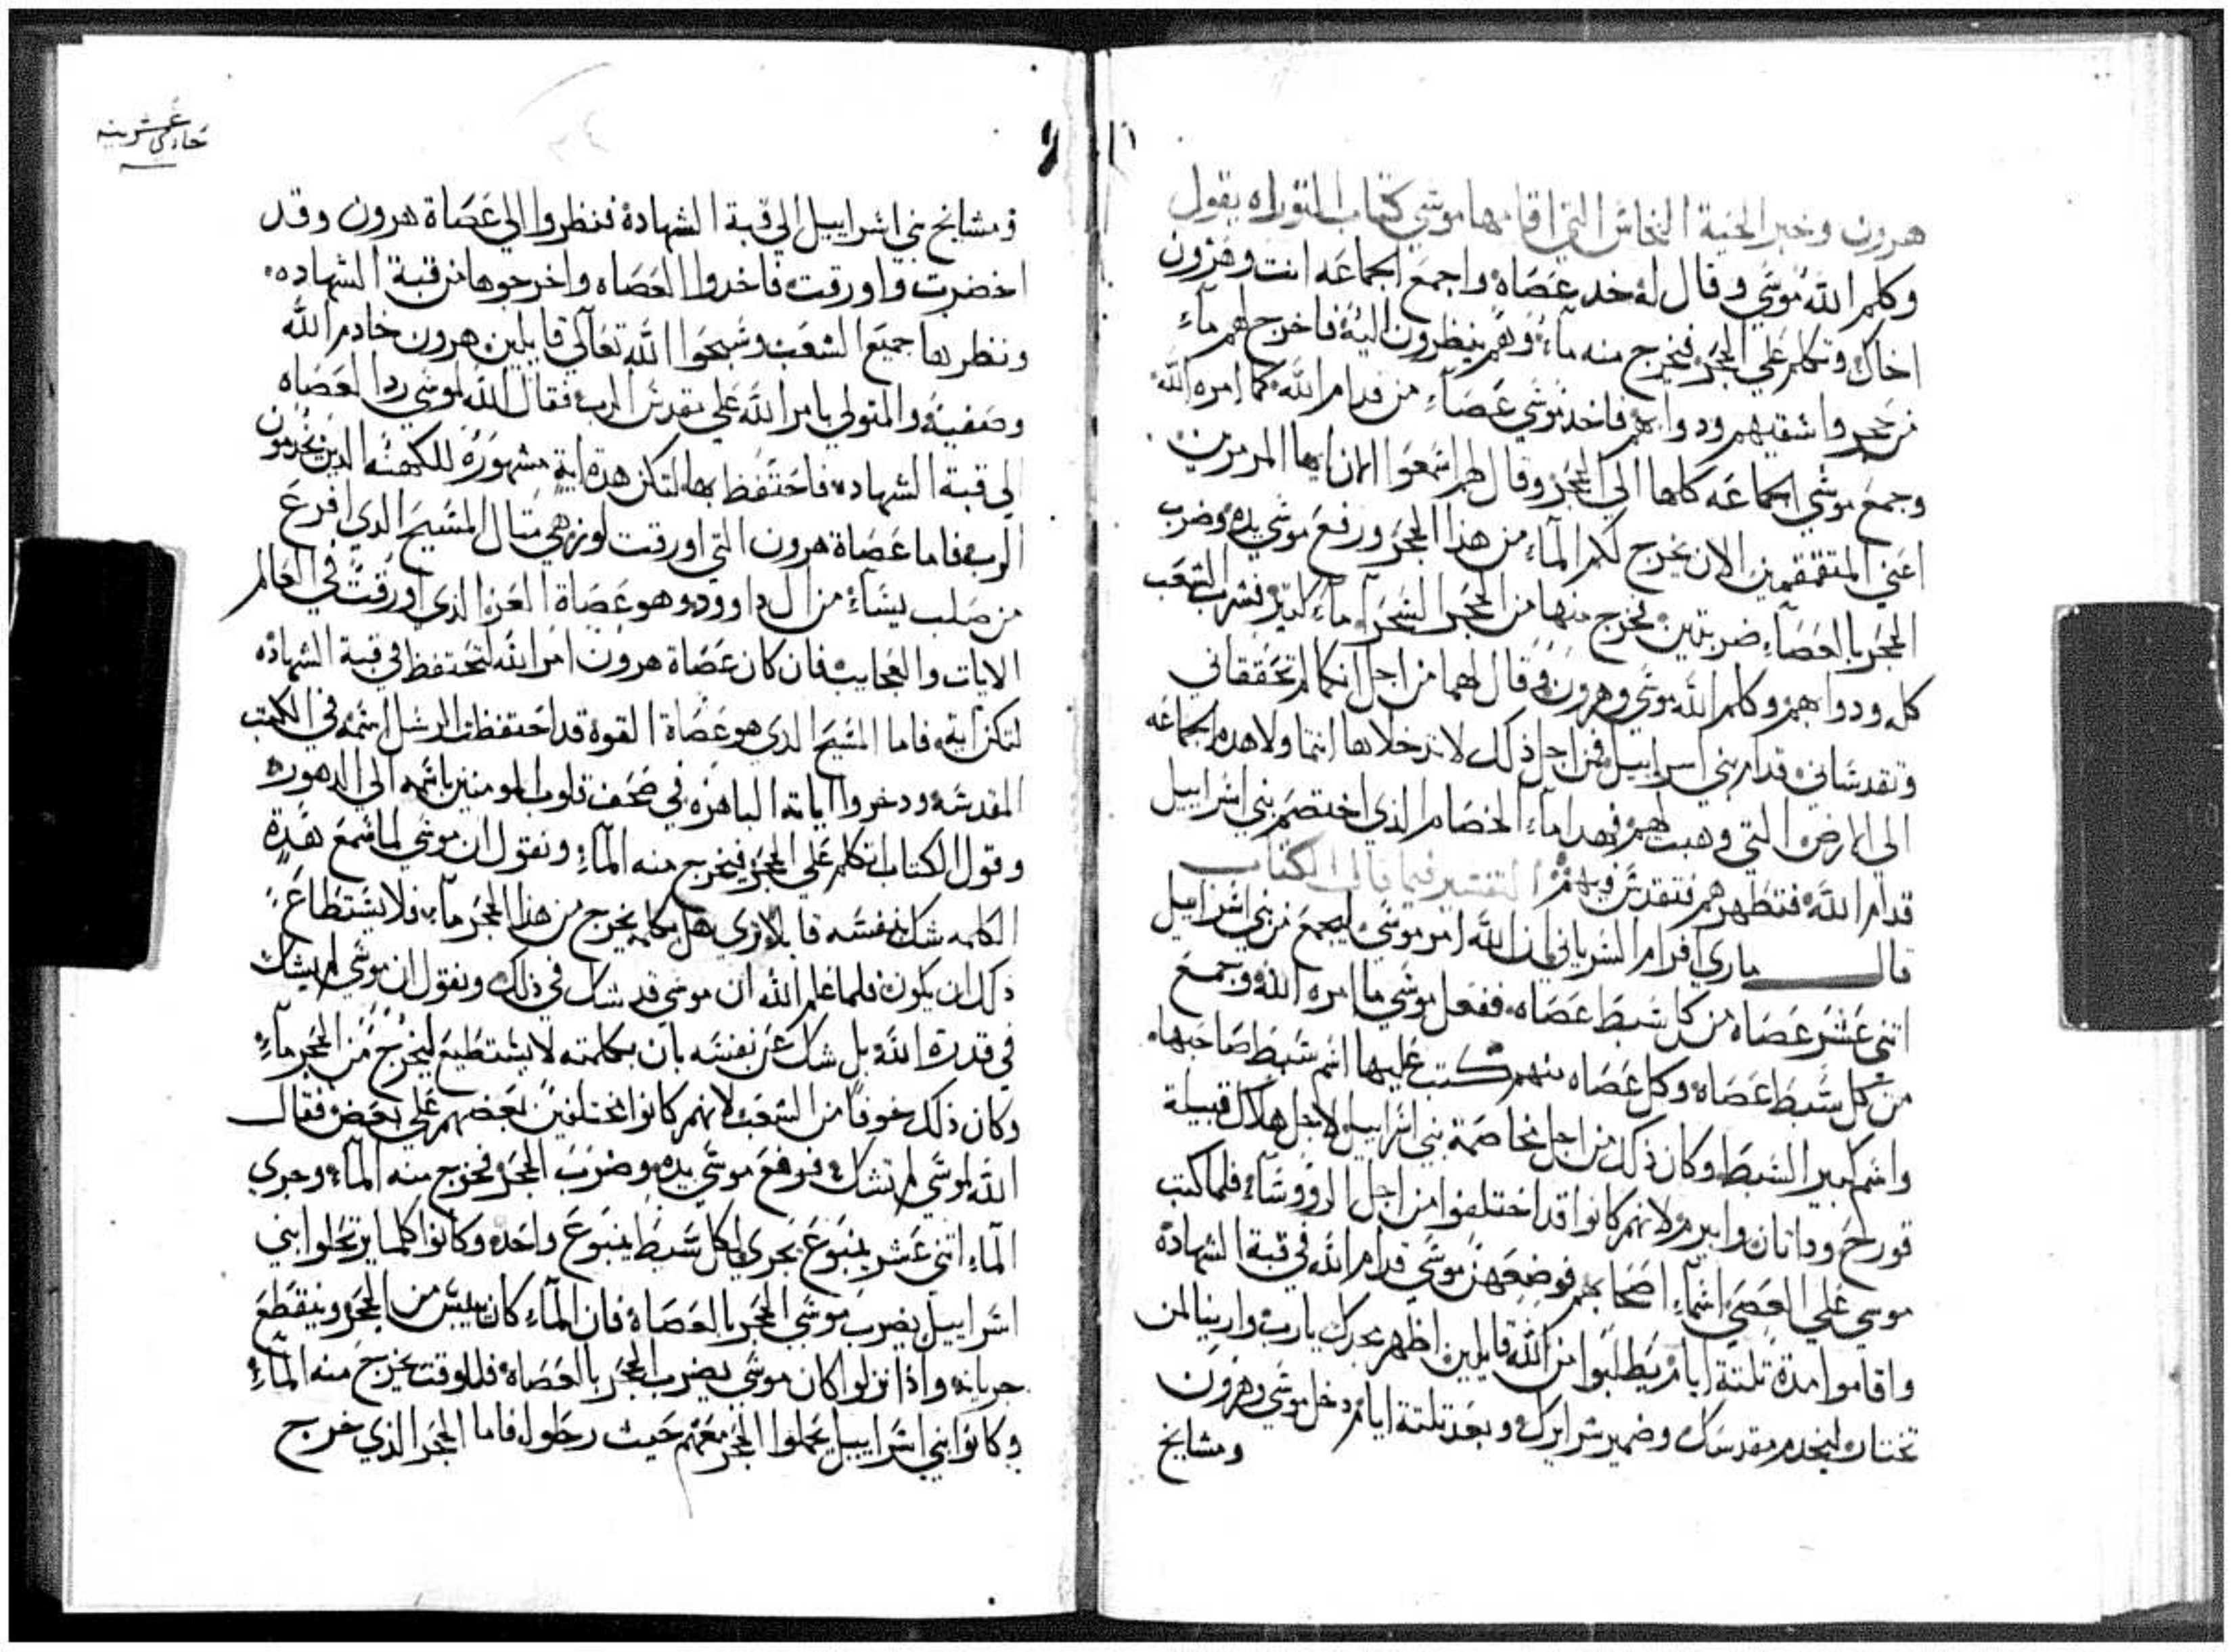 هرون وخبر الحية النحاس التي اقامها موسي كتاب التوراه يقول
وكلم الله موسي وقال له خد عصاه واجمع الجماعه انت وهرون
اخاك وتكلم علي الحجر فيخرج منه ماء وهم ينظرون اليه فاخرج لهم ماء
من حجر واسقيهم ودوابهم فاخد موسي عصاء من قدام الله كما امره الله
وجمع موسي الجماعه كلها الي الحجر وقال لهم اسمعوا الان ايها المرمرين
اعني المتقمقمين الان يخرج لكم الماء من هذا الحجر ورفع موسي يده وضرب
الحجر بالعصاء ضربتين فخرج منها من الحجر الشجرا ماء كتير فشرب الشعب
كله ودوابهم وكلم الله موسي وهرون وقال لهما من اجل انكما لم تحققاني
وتقدساني قدام بني اسراييل فمن اجل ذلك لا تدخلاها انتما ولا هده الجماعه
الي الارض التي وهبت لهم فهدا ماء الخصام الذي اختصم بني اسراييل
قدام الله فتطهرهم فتقدس بهم التفسير فيما قال الكتاب
قال ماري افرام السرياني ان الله امر موسي ليجمع من بني اسراييل
اتني عشر عصاه من كل سبط عصاه ففعل موسي ما امره الله وجمع
من كل سبط عصاه وكل عصاه منهم كتب عليها اسم سبط صاحبها
واسم كبير السبط وكان ذلك من اجل مخاصمة بني اسراييل لاجل هلاك قبيلة
قورح وداتان وابيرم لانهم كانوا قد اختلفوا من اجل الرووساء فلما كتب
موسي علي العصي اسماء اصحابهم فوضعهن موسي قدام الله في قبة الشهادة
واقاموا مدة تلتة ايام يطلبوا من الله قايلين اظهر مجدك يارب وارينا لمن
تختار ليخدم مقدسك وضمير سرايرك وبعد تلتة ايام دخل موسي وهرون
ومشايخ
حادي عشرينه
ومشايخ بني اسراييل الي قبة الشهادة فنظروا الي عصاة هرون وقد
اخضرت واورقت فاخدوا العصاه واخرجوها من قبة الشهاده
ونظرها جميع الشعب وسبحوا الله تعالي قايلين هرون خادم الله
وصفيه والمتولي بامر الله علي تقدس الرب فقال الله لموسي رد العصاه
الي قبة الشهاده فاحتفظ بها لتكن هده اية مشهورة للكهنه الدين يخدمون
الرب فاما عصاة هرون التي اورقت لوز هي متال المسيح الدي افرع
من صلب يساء من ال داوود وهو عصاة العز الذي اورقت في العالم
الايات والعجايب فان كان عصاة هرون امر الله لتحتفظ في قبة الشهاده
لتكن اية فاما المسيح الدي هو عصاة القوة قد احتفظت الرسل اسمه في الكتب
المقدسه ودخروا اياته الباهره في صحف قلوب المومنين باسمه الي الدهوره
وقول الكتاب اتكلم علي الحجر فيخرج منه الماء ونقول ان موسي لما سمع هدة
الكلمه شك بنفسه قايلا تري هل بكلمه يخرج من هذا الحجر ماء فلا يستطاع
ذلك ان يكون فلما علم الله ان موسي قد شك في ذلك ونقول ان موسي لم يشك
في قدرة الله بل شك عن نفسه بان بكلمته لا يستطيع ليخرج من الحجر ماء
وكان ذلك خوفا من الشعب لانهم كانوا مختلفين بعضهم علي بعض فقال
الله لموسي لم تشك فرفع موسي يده وضرب الحجر فخرج منه الماء وجري
الماء اتني عشر ينبوع تجري لكل سبط ينبوع واحده وكانوا كلما يرتحلوا بني
اسراييل يضرب موسي الحجر بالعصاه فان الماء كان ييبس من الحجر وينقطع
جريانه واذا نزلوا كان موسي يضرب الحجر بالعصاه فللوقت يخرج منه الماء
وكانوا بني اسراييل يحملوا الحجر معهم حيث رحلوا فاما الحجر الذي خرج